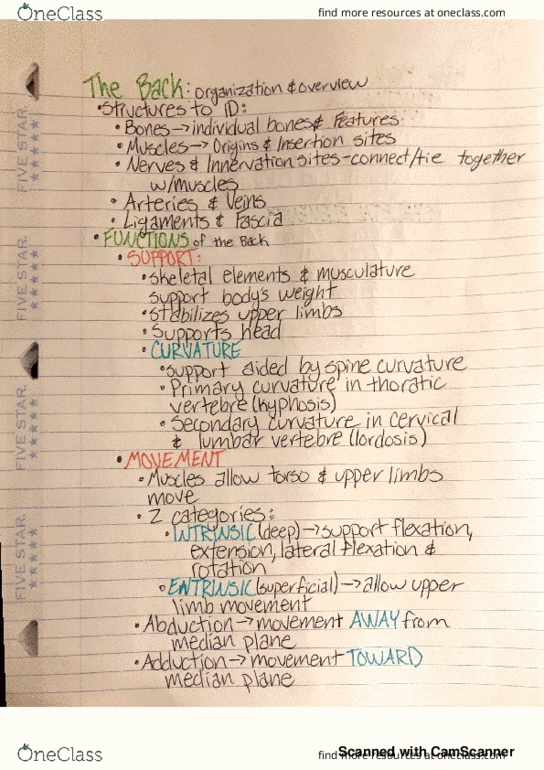 OneClass
find more resources at oneclass.com
The Back: organization & overview
• Structures to ID:
• Bones → individual bones & Features
• Muscles → Origins & Insertion sites
• Nerves & Innervation sites - connect/tie together
w/muscles
• Arteries & Veins
• Ligaments & Fascia
• FUNCTIONS of the Back
• SUPPORT:
• skeletal elements & musculature
support body's weight
• stabilizes upper limbs
• Supports head
• CURVATURE
• support aided by spine curvature
• Primary curvature in thoratic
vertebre (kyphosis)
• Secondary curvature in cervical
& lumbar vertebre (lordosis)
• MOVEMENT
• Muscles allow torso & upper limbs
move
• 2 categories:
• INTRINSIC (deep) → support flexation,
extension, lateral flexation &
rotation
• ENTRINSIC (superficial) → allow upper
limb movement
• Abduction → movement AWAY from
median plane
• Adduction → movement TOWARD
median plane
FIVE STAR.
FIVE STAR.
FIVE STAR.
FIVE STAR.
OneClass
find more resources at oneclass.com
Scanned with CamScanner